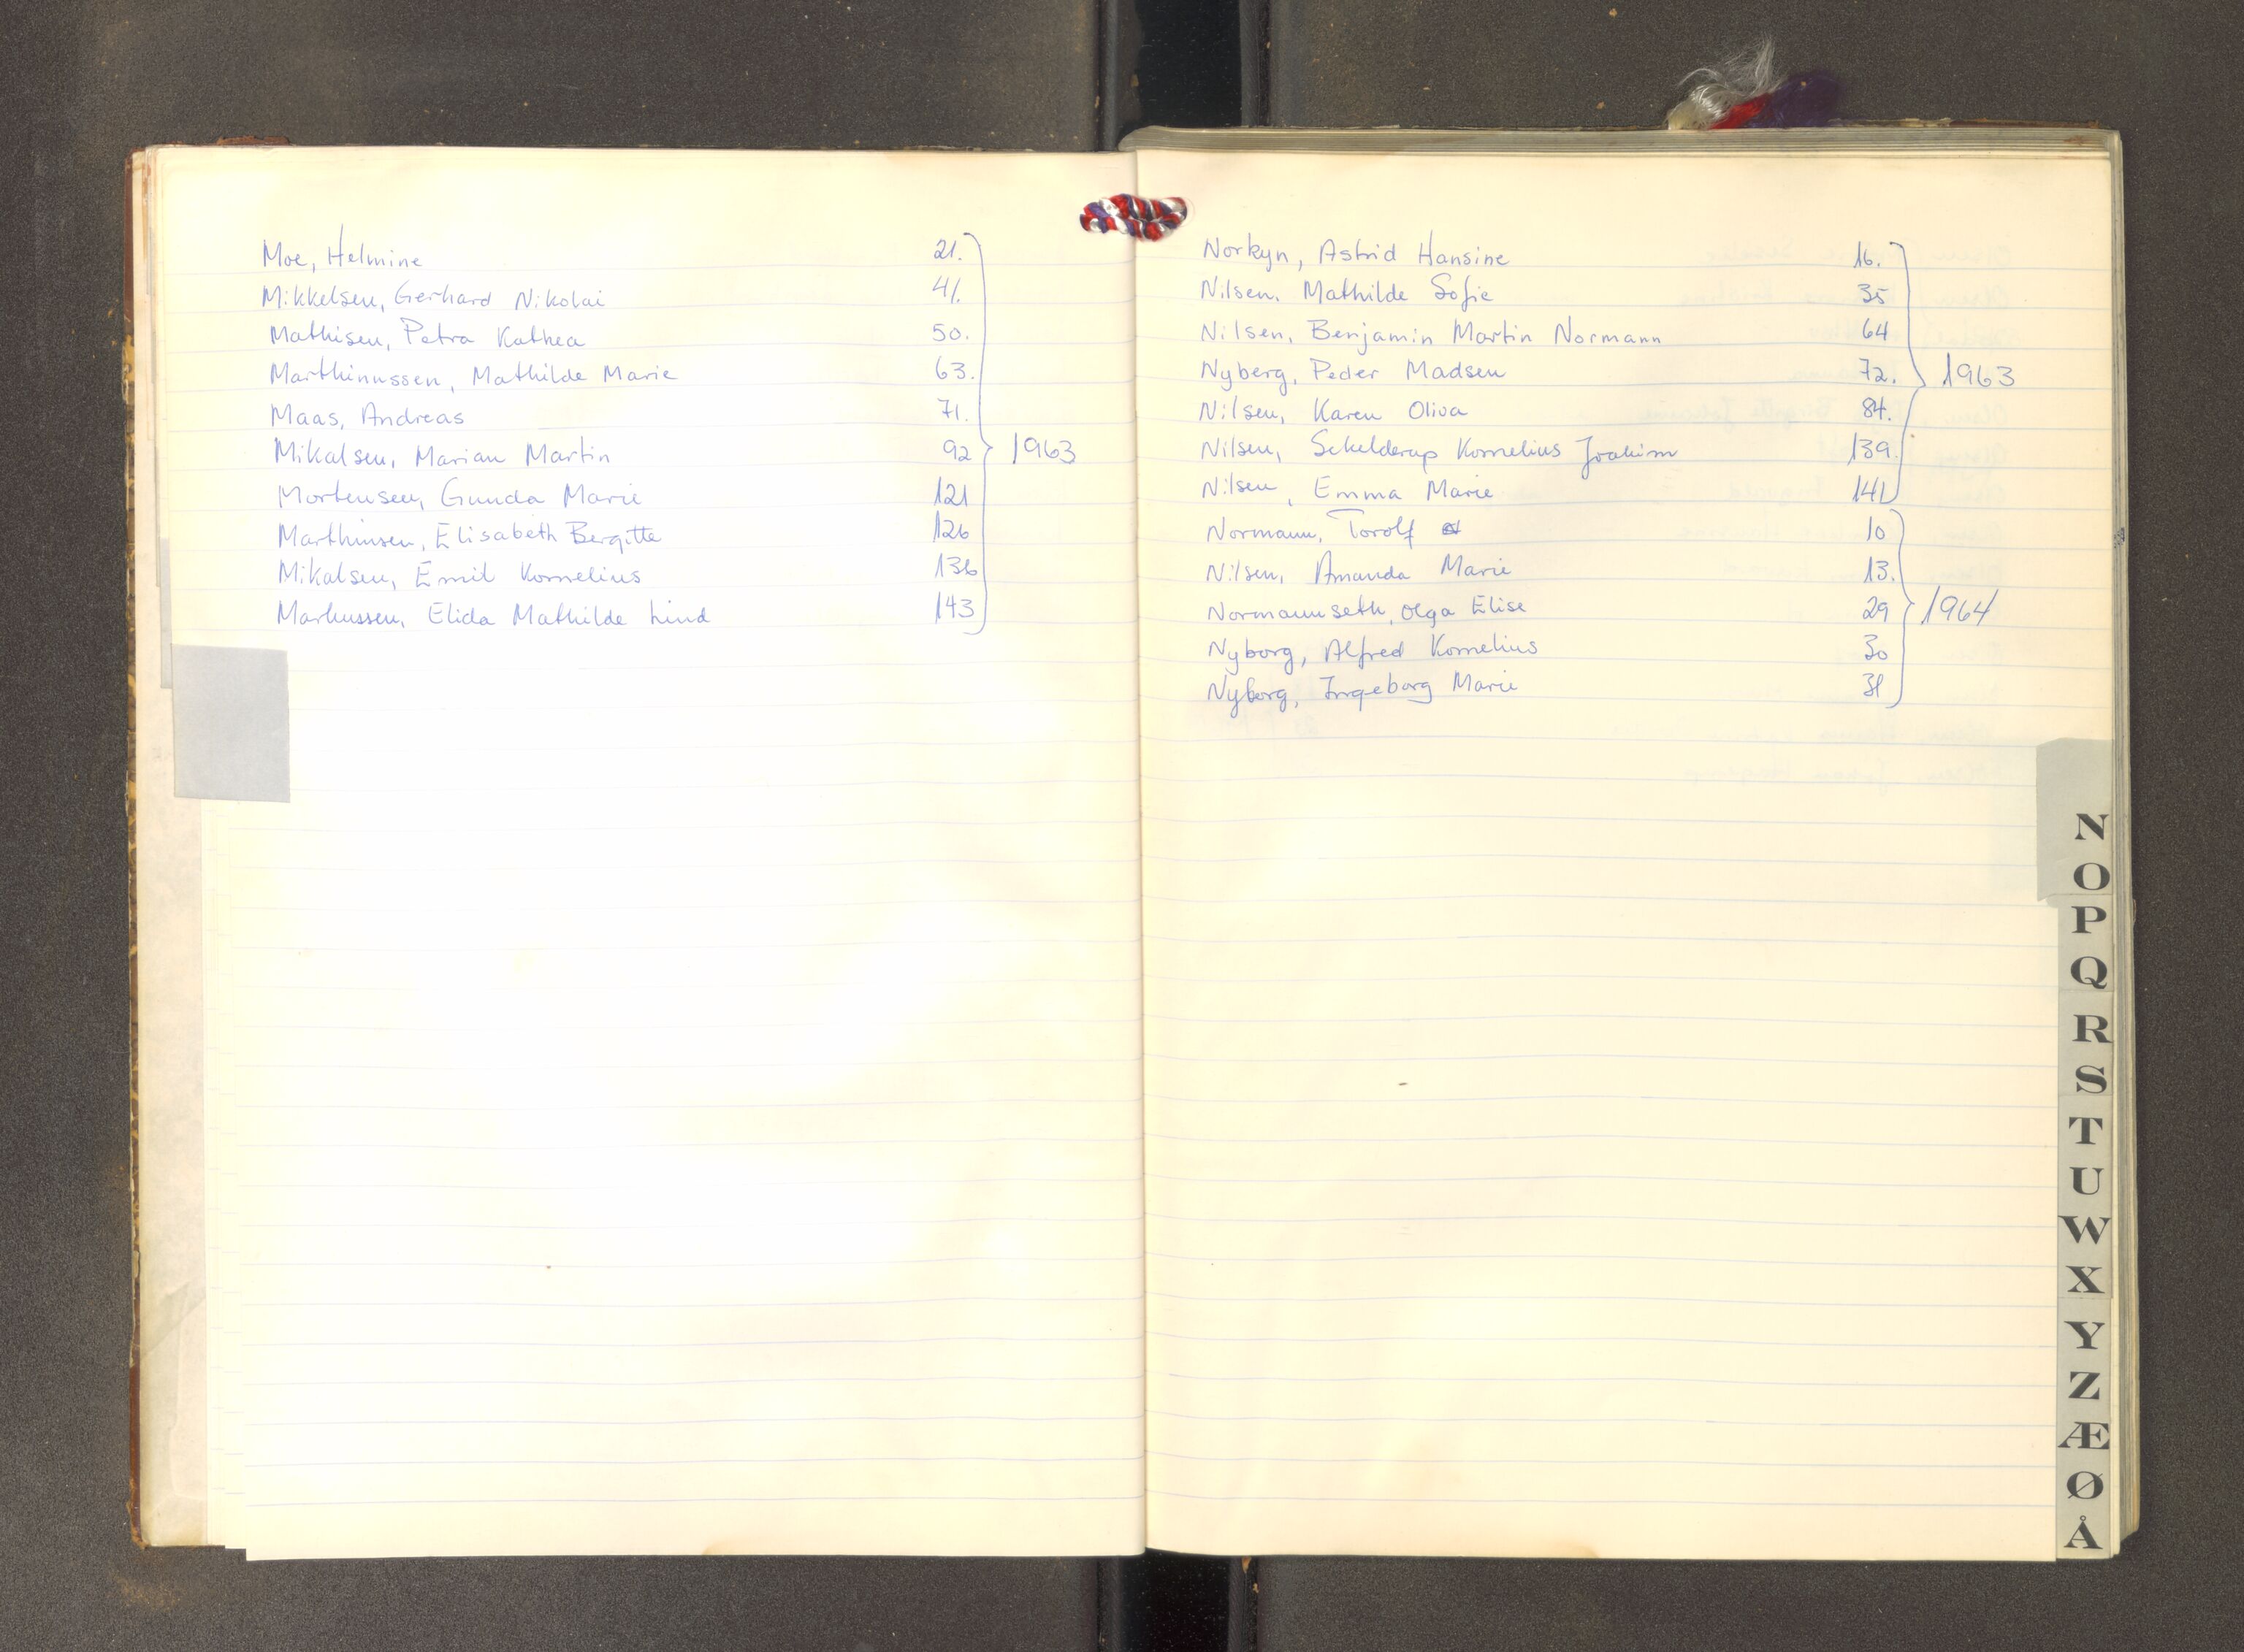 Moe, Helmine 21.
Mikkelsen, Gerhard Nikolai 41.
Mathisen, Petra Kathea 50.
Marthinussen, Mathilde Marie 63.
Maas, Andreas 71.
Mikalsen, Marian Martin 92 1963
Mortensen, Gunda Marie 121
Marthinsen, Elisabeth Bergitte 126
Mikalsen, Emil Kornelius 136
Markussen, Elida Mathilde Lind 143
Norkyn, Astrid Hansine 16.
Nilsen, Mathilde Sofie 35
Nilsen, Benjamin Martin Normann 64
Nyberg, Peder Madsen 72. 1963
Nilsen, Karen Oliva 84.
Nilsen, Schelderup Kornelius Joakim 139.
Nilsen, Emma Marie 141
Normann, Torolf 10
Nilsen, Amanda Marie 13.
Normannseth, Olga Elise 29 1964
Nyborg, Alfred Kornelius 30
Nyborg, Ingeborg Marie 31
N
O
P
Q
R
S
T
U
W
X
Y
Z
Æ
Ø
Å